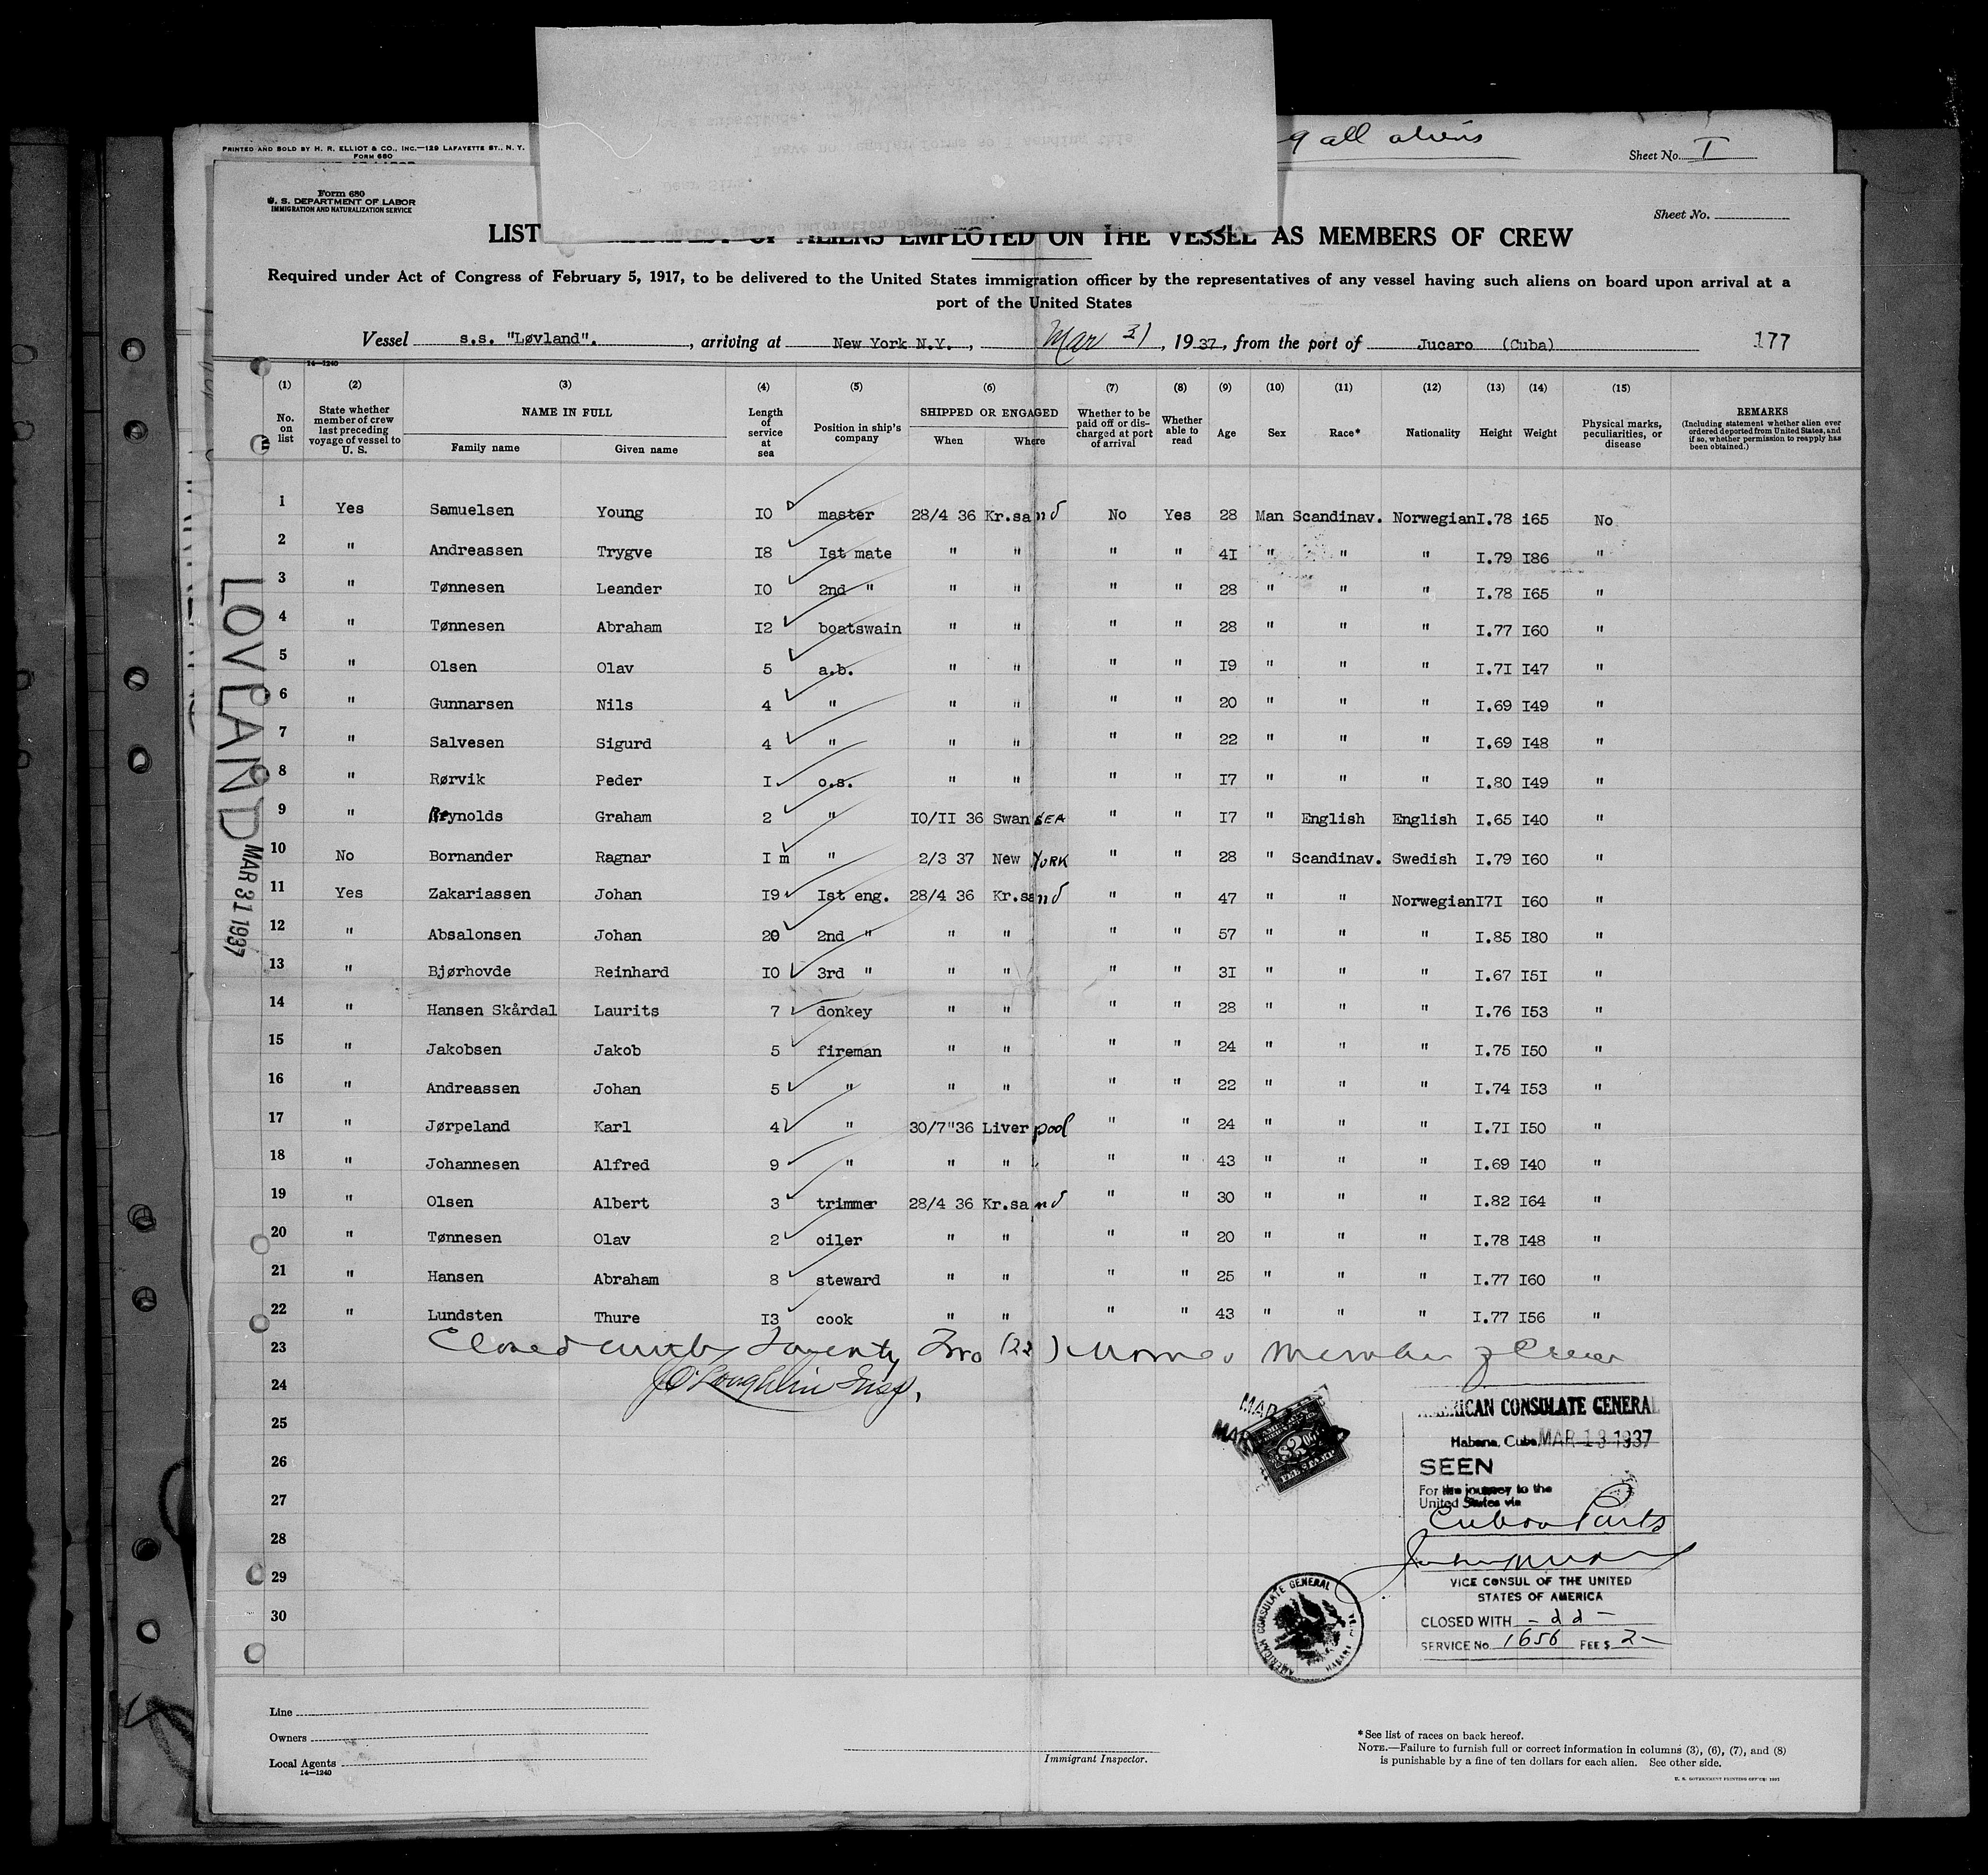 PRINTED AND SOLD BY H. R. ELLIOT & CO., INC.—129 LAFAYETTE ST., N. Y.
FORM 680
all aliens
Sheet No. I
Form 680
U. S. DEPARTMENT OF LABOR
IMMIGRATION AND NATURALIZATION SERVICE
Sheet No.
LIST ALIENS EMPLOYED ON THE VESSEL AS MEMBERS OF CREW
Required under Act of Congress of February 5, 1917, to be delivered to the United States immigration officer by the representatives of any vessel having such aliens on board upon arrival at a
port of the United States
Vessel s.s. "Løvland". , arriving at New York N.Y. , Mar 31 , 19 37, from the port of Jucaro (Cuba) 177
14—1240
(1) (2) (3) (4) (5) (6) (7) (8) (9) (10) (11) (12) (13) (14) (15)
No. on list State whether member of crew last preceding voyage of vessel to U. S. NAME IN FULL Family name Given name Length of service at sea Position in ship's company SHIPPED OR ENGAGED When Where Whether to be paid off or discharged at port of arrival Whether able to read Age Sex Race* Nationality Height Weight Physical marks, peculiarities, or disease REMARKS (Including statement whether alien ever ordered deported from United States, and if so, whether permission to reapply has been obtained.)
1 Yes Samuelsen Young I0 master 28/4 36 Kr.sand No Yes 28 Man Scandinav. Norwegian I.78 i65 No
2 " Andreassen Trygve I8 Ist mate " " " " 4I " " " I.79 I86 "
3 " Tønnesen Leander I0 2nd " " " " " 28 " " " I.78 I65 "
4 " Tønnesen Abraham I2 boatswain " " " " 28 " " " I.77 I60 "
5 " Olsen Olav 5 a.b. " " " " I9 " " " I.7I I47 "
6 " Gunnarsen Nils 4 " " " " " 20 " " " I.69 I49 "
7 " Salvesen Sigurd 4 " " " " " 22 " " " I.69 I48 "
8 " Rørvik Peder I o.s. " " " " I7 " " " I.80 I49 "
9 " Reynolds Graham 2 " I0/II 36 Swansea " " I7 " English English I.65 I40 "
10 No Bornander Ragnar I m " 2/3 37 New York " " 28 " Scandinav. Swedish I.79 I60 "
11 Yes Zakariassen Johan I9 Ist eng. 28/4 36 Kr.sand " " 47 " " Norwegian I7I I60 "
12 " Absalonsen Johan 20 2nd " " " " " 57 " " " I.85 I80 "
13 " Bjørhovde Reinhard I0 3rd " " " " " 3I " " " I.67 I5I "
14 " Hansen Skårdal Laurits 7 donkey " " " " 28 " " " I.76 I53 "
15 " Jakobsen Jakob 5 fireman " " " " 24 " " " I.75 I50 "
16 " Andreassen Johan 5 " " " " " 22 " " " I.74 I53 "
17 " Jørpeland Karl 4 " 30/7"36 Liverpool " " 24 " " " I.7I I50 "
18 " Johannesen Alfred 9 " " " " " 43 " " " I.69 I40 "
19 " Olsen Albert 3 trimmer 28/4 36 Kr.sand " " 30 " " " I.82 I64 "
20 " Tønnesen Olav 2 oiler " " " " 20 " " " I.78 I48 "
21 " Hansen Abraham 8 steward " " " " 25 " " " I.77 I60 "
22 " Lundsten Thure I3 cook " " " " 43 " " " I.77 I56 "
23 Closed Twenty Two (22) Member of Crew
24 O'Loughlin Insp.
25
26
27
28
29
30
LOVLAND
MAR 31 1937
MAR
FEE STAMP
AMERICAN CONSULATE GENERAL
Habana, Cuba MAR 18 1937
SEEN
For the journey to the
United States via
Cuban Ports
VICE CONSUL OF THE UNITED
STATES OF AMERICA
CLOSED WITH — 22 —
SERVICE No. 1656 FEE $ 2—
AMERICAN CONSULATE GENERAL
Line
Owners
Local Agents
14—1240
Immigrant Inspector.
*See list of races on back hereof.
NOTE.—Failure to furnish full or correct information in columns (3), (6), (7), and (8)
is punishable by a fine of ten dollars for each alien. See other side.
U. S. GOVERNMENT PRINTING OFFICE: 1931